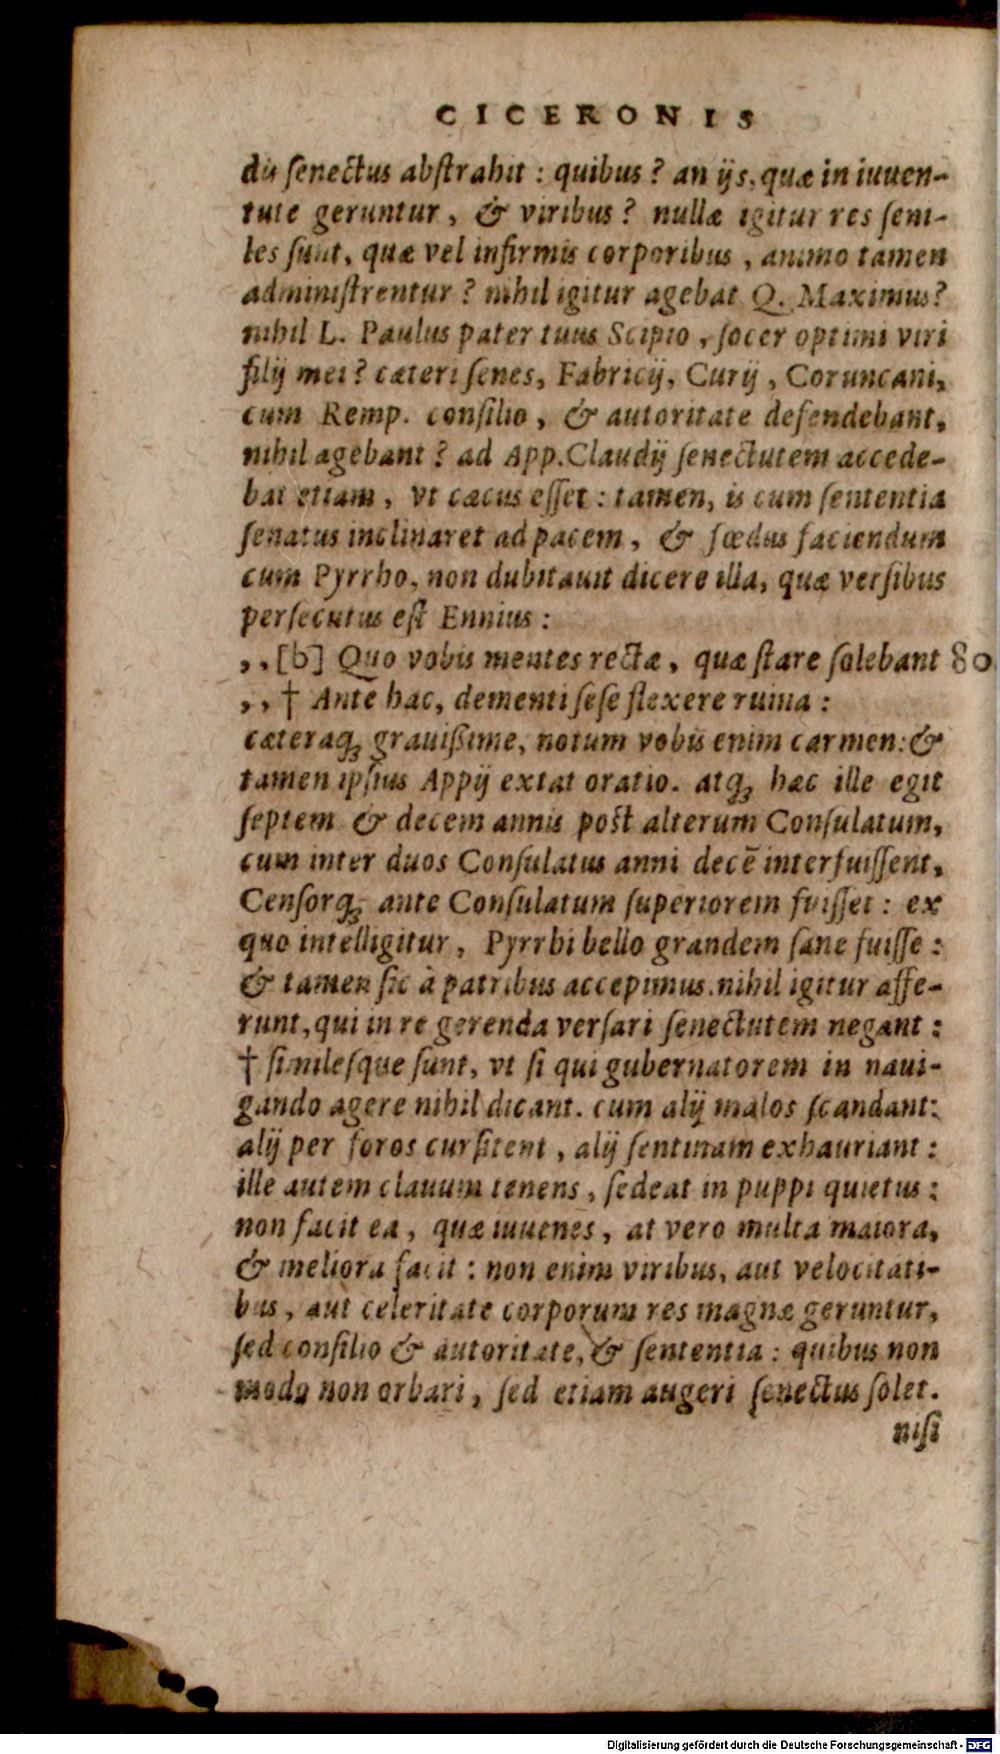 CICERONIS
dis ſenectus abſtrahit : quibus? an ijs, quæ in iuuen-
tute geruntur, & viribus? nullæ igitur res ſeni-
les ſunt, quæ vel infirmis corporibus, animo tamen
adminiſtrentur? nihil igitur agebat Q. Maximus?
nihil L. Paulus pater tuus Scipio, ſocer optimi viri
filij mei? cæteri ſenes, Fabricij, Curij, Coruncani,
cum Remp. conſilio, & autoritate defendebant,
nihil agebant? ad App. Claudij ſenectutem accede-
bat etiam, vt cæcus eſſet : tamen, is cum ſententia
ſenatus inclinaret ad pacem, & fœdus faciendum
cum Pyrrho, non dubitauit dicere illa, quæ verſibus
perſecutus eſt Ennius :
,,[b] Quo vobis mentes rectæ, quæ ſtare ſolebant 80
,, † Ante hac, dementi ſeſe flexere ruina :
cæteraq; grauißime, notum vobis enim carmen: &
tamen ipſius Appij extat oratio. atq; hæc ille egit
ſeptem & decem annis poſt alterum Conſulatum,
cum inter duos Conſulatus anni decē interfuiſſent,
Cenſorq; ante Conſulatum ſuperiorem fuiſſet : ex
quo intelligitur, Pyrrhi bello grandem ſane fuiſſe :
& tamen ſic à patribus accepimus. nihil igitur affe-
runt, qui in re gerenda verſari ſenectutem negant :
† ſimileſque ſunt, vt ſi qui gubernatorem in naui-
gando agere nihil dicant. cum alij malos ſcandant:
alij per foros curſitent, alij ſentinam exhauriant :
ille autem clauum tenens, ſedeat in puppi quietus :
non facit ea, quæ iuuenes, at vero multa maiora,
& meliora facit : non enim viribus, aut velocitati-
bus, aut celeritate corporum res magnæ geruntur,
ſed conſilio & autoritate, & ſententia : quibus non
modo non orbari, ſed etiam augeri ſenectus ſolet.
niſi
Digitalisierung gefördert durch die Deutsche Forschungsgemeinschaft - DFG